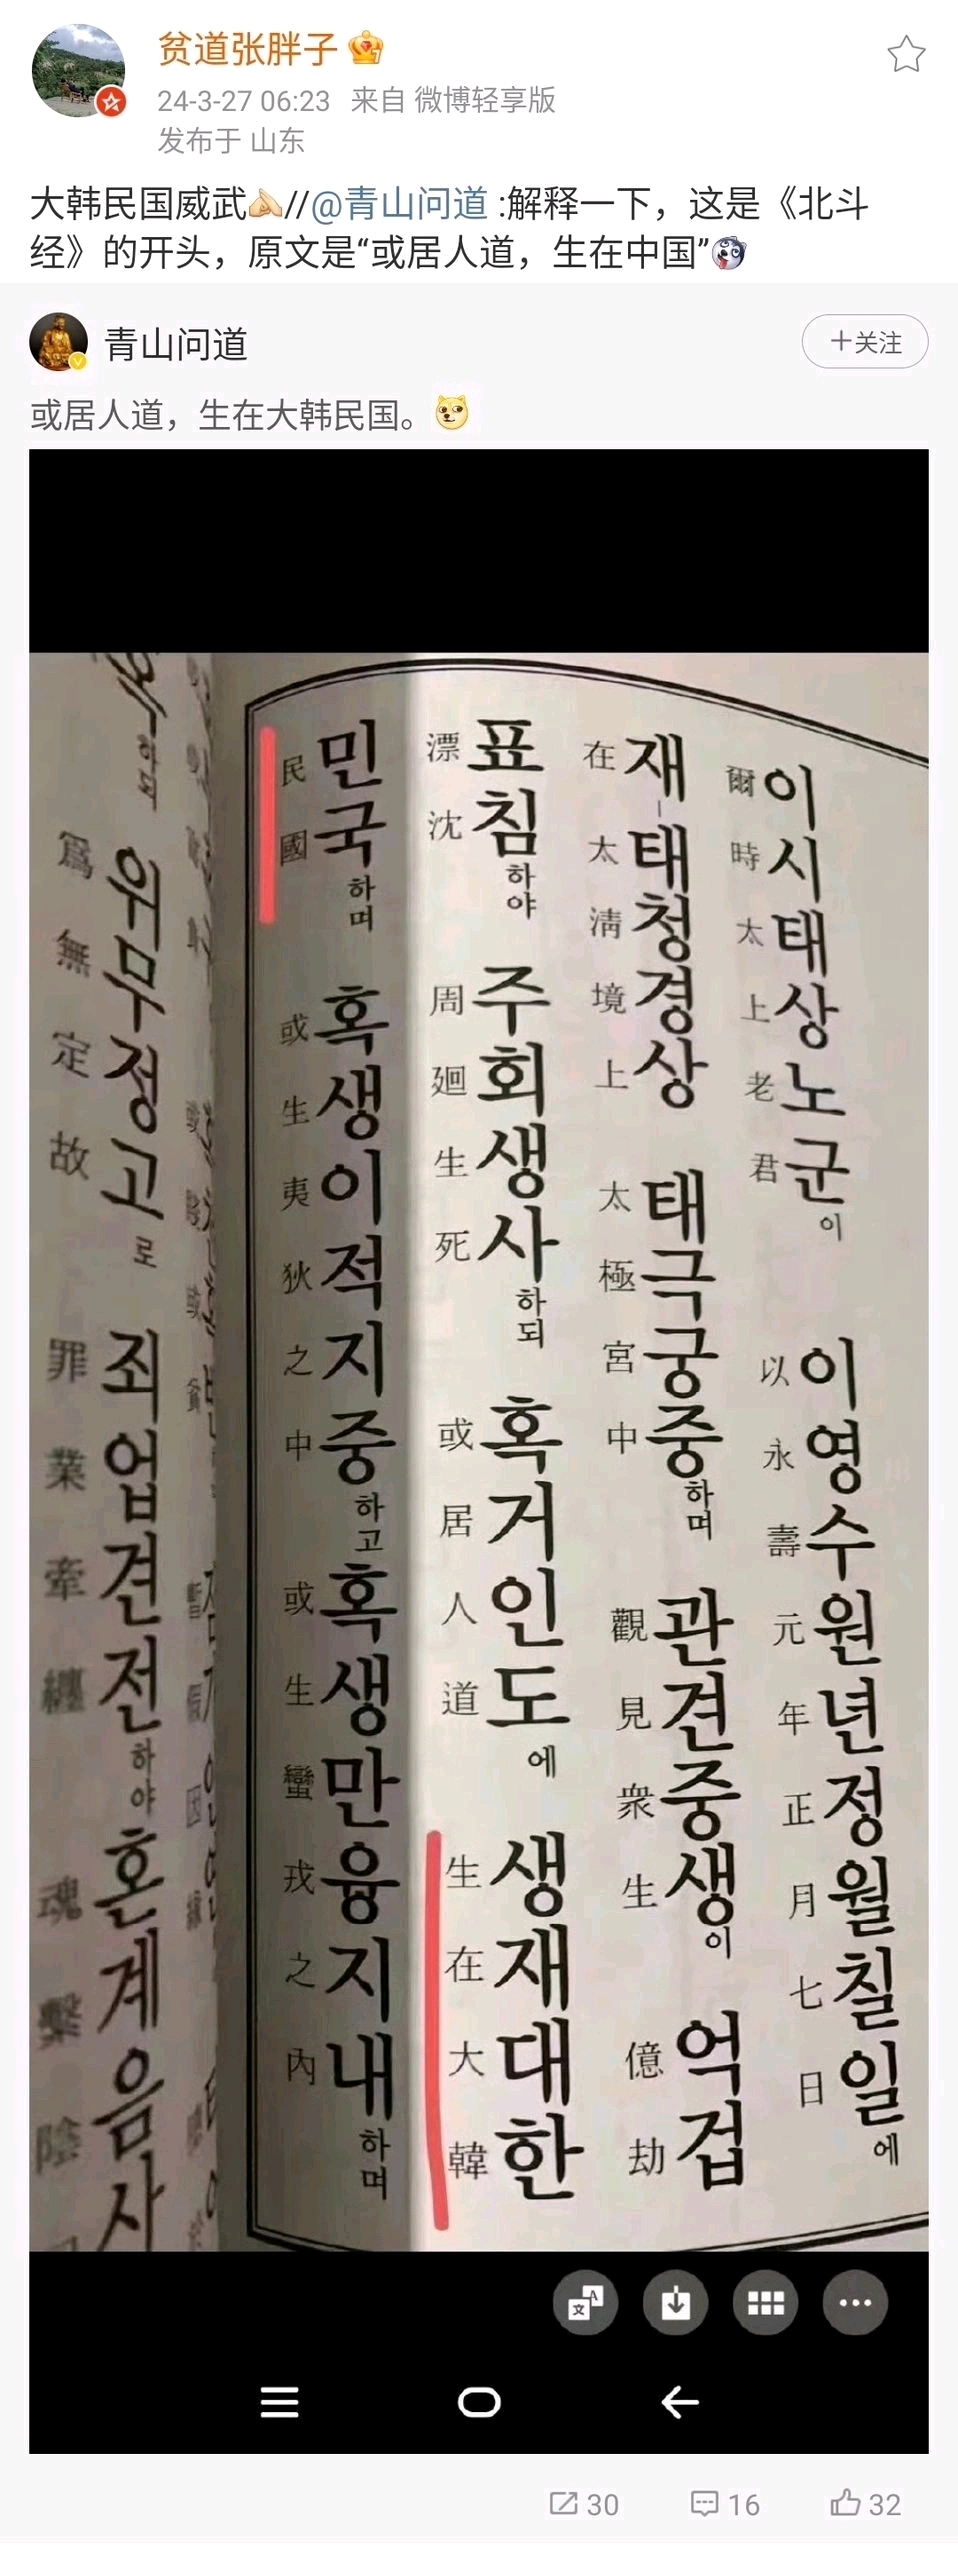 贫道张胖子
24-3-27 06:23 来自 微博轻享版
发布于 山东
大韩民国威武//@青山问道 :解释一下，这是《北斗
经》的开头，原文是“或居人道，生在中国”
青山问道
+关注
或居人道，生在大韩民国。
이시태상노군이 이영수원년정월칠일에
爾時太上老君 以永壽元年正月七日
재태청경상 태극궁중하며 관견중생이 억겁
在太淸境上 太極宮中 觀見衆生 億劫
표침하야 주회생사하되 혹거인도에 생재대한
漂沈 周廻生死 或居人道 生在大韓
민국하며 혹생이적지중하고 혹생만융지내하며
民國 或生夷狄之中 或生蠻戎之內
하되 위무정고로 죄업견전하야 혼계음사
爲無定故 罪業牽纏 魂繫陰
30
16
32